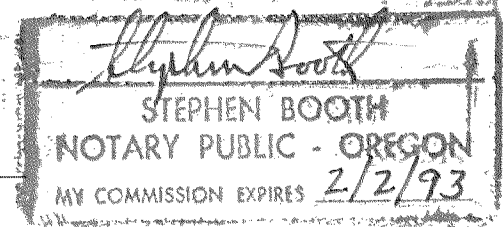 Stephen Booth
STEPHEN BOOTH
NOTARY PUBLIC - OREGON
MY COMMISSION EXPIRES 2/2/93